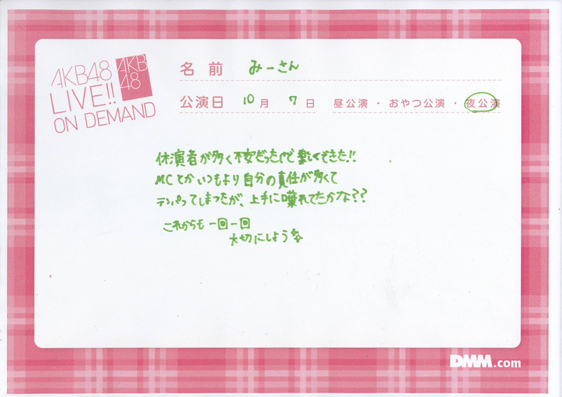 AKB48
LIVE!!
ON DEMAND
AKB
48
名前 みーさん
公演日 10月 7日 昼公演・おやつ公演・夜公演
休演者が多く不安だったけど楽しくできた!!
MCとかいつもより自分の責任が多くて
テンパってしまったが、上手に喋れてたかな??
これからも一回一回
大切にしような
DMM.com